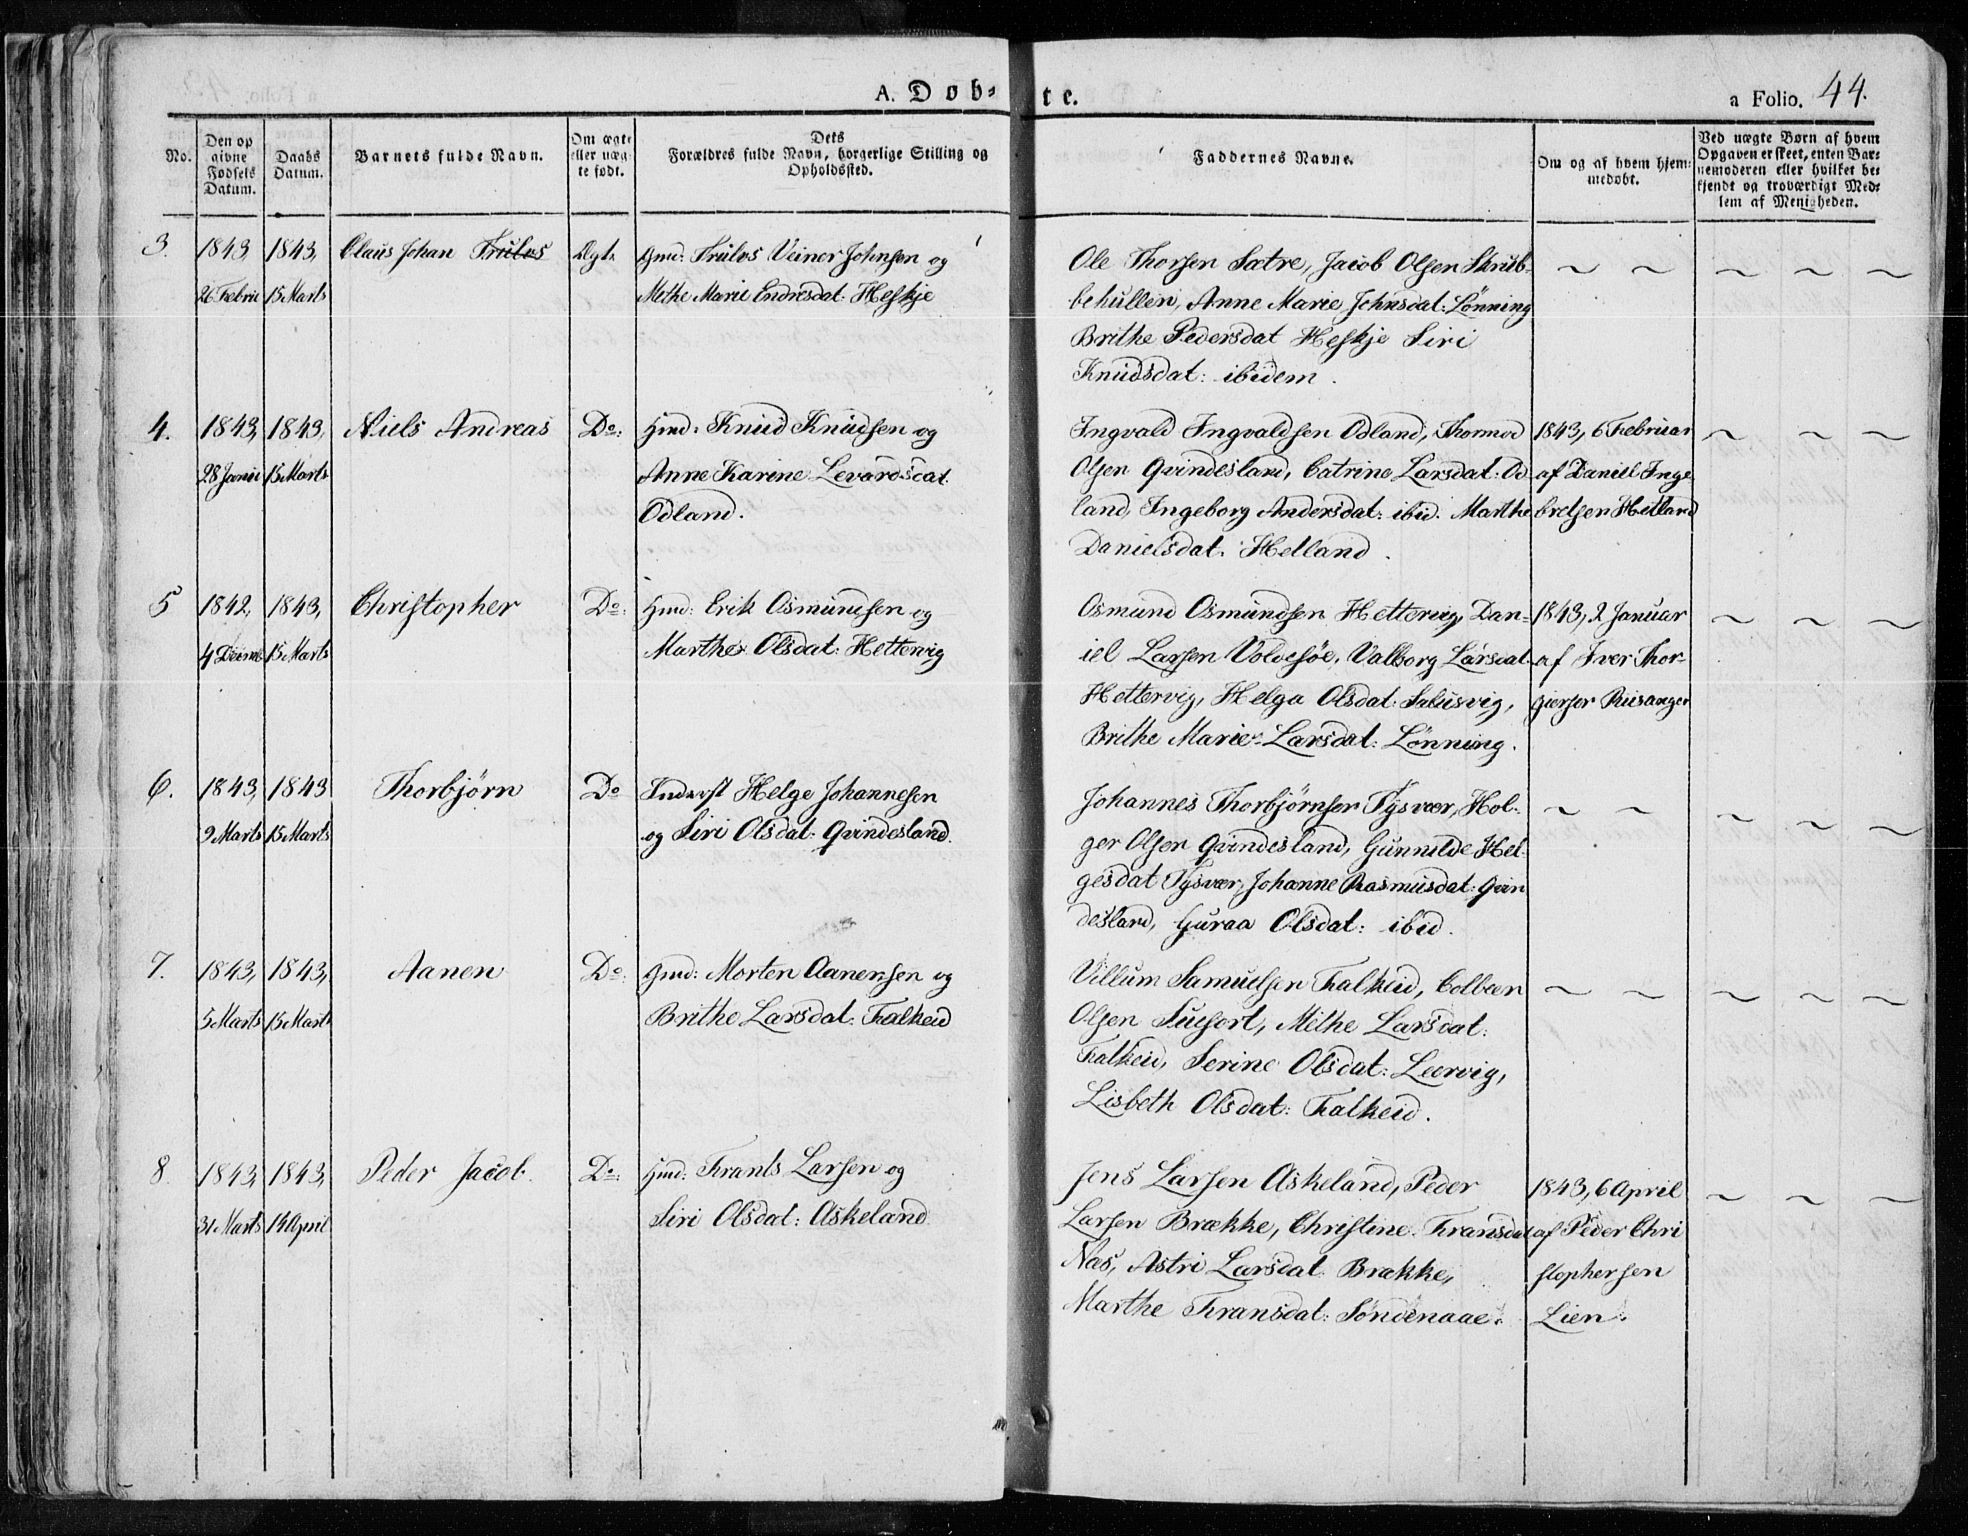 A. Døb- te.
a Folio. 44.
No.
Den op
givne
Fødsels
Datum.
Daabs
Datum.
Barnets fulde Navn.
Om ægte
eller uæg-
te født.
Dets
Forældres fulde Navn, borgerlige Stilling og
Opholdssted.
Faddernes Navne.
Om og af hvem hjem-
medøbt.
Ved uægte Børn af hvem
Opgaven er skeet, enten Bar-
nemoderen eller hvilket be-
kjendt og troværdigt Med-
lem af Menigheden.
3.
1843,
26 Febru
1843,
15 Marts
Claus Johan Trulos
Ægt.
Gmd: Trulos Veiner Johnsen og
Methe Marie Endresdat: Heskje
Ole Thorsen Satre, Jacob Olsen Skrub-
behullen, Anne Marie Johnsdat: Lønning
Brithe Pedersdat Heskje Siri
Knudsdat: ibidem.
4.
1843,
28 Janu
1843,
15 Marts
Niels Andreas
Do:
Hmd: Knud Knudsen og
Anne Karine Levardsdat
Odland.
Ingvald Ingvaldsen Odland, Thormod
Olsen Qvindesland, Catrine Larsdat: Od-
land, Ingeborg Andersdat: ibid. Marthe
Danielsdat. Helland.
1843, 6 Februar
af Daniel Inge
bretsen Hetland
5
1842,
4 Decemb
1843,
15 Marts
Christopher
Do:
Hmd: Erik Osmundsen og
Marthe Olsdat: Hettervig
Osmund Osmundsen Hettervig, Dan-
iel Larsen Voldesøe, Valborg Larsdat
Hettervig, Helga Olsdat: Salusvig,
Brithe Marie Larsdat: Lønning.
1843, 2 Januar
af Iver Thor-
giersen Riisanger
6.
1843,
9 Marts
1843
15 Marts
Thorbjörn
Do
Inderst Helge Johannesen
og Siri Olsdat: Qvindesland.
Johannes Thorbjörnsen Tysvær, Hol-
ger Olsen Qvindesland, Gunnilde Hel-
gesdat Tysvær, Johanne Rasmusdat: Qvin
desland, Guraa Olsdat: ibid.
7.
1843,
5 Marts
1843,
15 Marts
Aanen
Do:
Gmd: Morten Aanensen og
Brithe Larsdat: Falkeid
Villum Samuelsen Falkeid, Colbeen
Olsen, Methe Larsdat:
Falkeid, Serine Olsdat: Leervig,
Lisbeth Olsdat: Falkeid.
8.
1843,
31 Marts
1843,
14 April
Peder Jacob.
Do:
Hmd: Frants Larsen og
Siri Olsdat: Askeland.
Jens Larsen Askeland, Peder
Larsen Brække, Christine Fransdat
Nas, Astri Larsdat Brække,
Marthe Fransdat: Söndenaae.
1843, 6 April
af Peder Chri
stophersen
Lien.